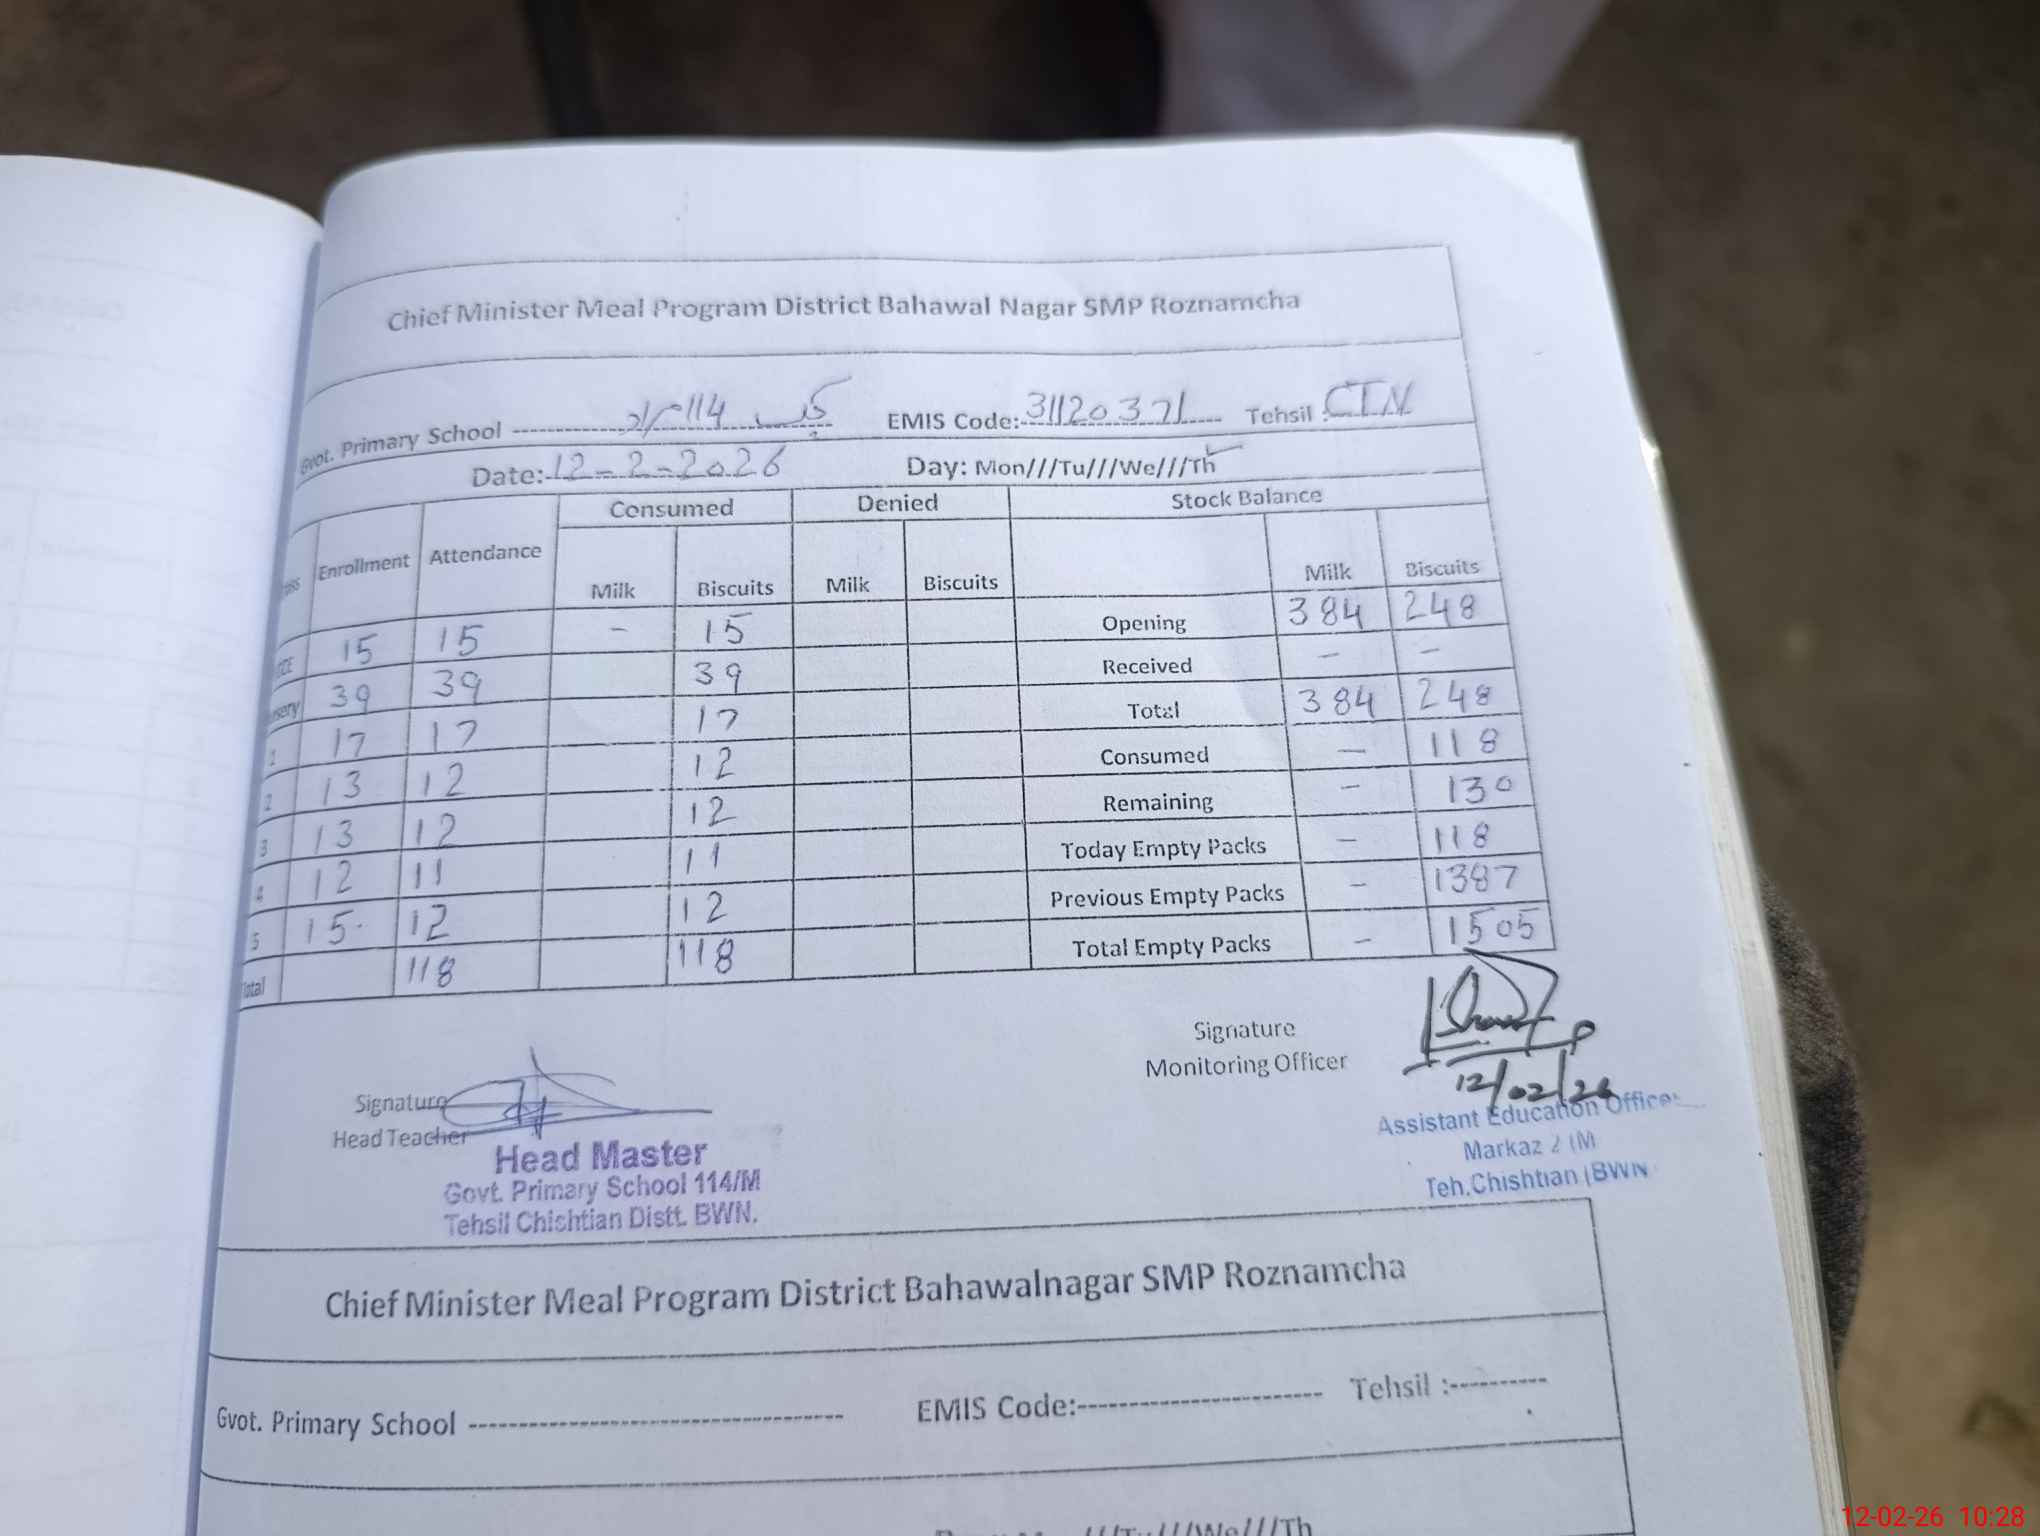 Chief Minister Meal Program District Bahawal Nagar SMP Roznamcha
Gvot. Primary School 114/مراد EMIS Code: 31120371 Tehsil : CTN
Date: 12-2-2026 Day: Mon///Tu///We///Th ✓
Enrollment Attendance Consumed Denied Stock Balance
Milk Biscuits Milk Biscuits Milk Biscuits
15 15 - 15 Opening 384 248
39 39 39 Received - -
1 17 17 17 Total 384 248
2 13 12 12 Consumed - 118
3 13 12 12 Remaining - 130
4 12 11 11 Today Empty Packs - 118
5 15 12 12 Previous Empty Packs - 1387
Total 118 118 Total Empty Packs - 1505
Signature
Monitoring Officer
12/02/26
Assistant Education Officer
Markaz 2 (M
Teh.Chishtian (BWN
Signature
Head Teacher
Head Master
Govt. Primary School 114/M
Tehsil Chishtian Distt. BWN.
Chief Minister Meal Program District Bahawalnagar SMP Roznamcha
Gvot. Primary School EMIS Code: Tehsil :
///Tu///We///Th
12-02-26 10:28